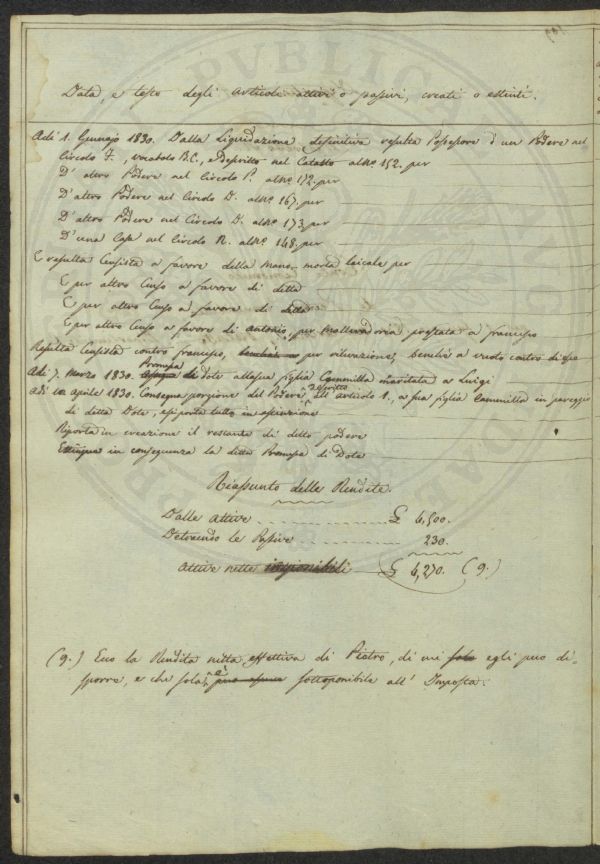 Data, e testo degli articoli attivi o passivi, creati o estinti.
Adì 1. Gennajo 1830. Dalla Liquidazione definitiva resulta Possessore d'un Podere nel
Circolo F., vocabolo B.C., e descritto nel Catasto al N.º 152. per
D'altro Podere nel Circolo P. al N.º 172. per
D'altro Podere nel Circolo D. al N.º 167. per
D'altro Podere nel Circolo D. al N.º 173. per
D'una Casa nel Circolo R. al N.º 148. per
E resulta Censista a favore della mano-morta laicale per
E per altro Censo a favore di detta
E per altro Censo a favore di detta
E per altro Censo a favore di Antonio, per mallevadoria prestata a Francesco
Resulta Censista contro Francesco, per rilevazione, benchè a credo contro di esso
Adì 7. Marzo 1830. Promessa di Dote alla sua figlia Cammilla maritata a Luigi
Adì 10 Aprile 1830. Consegna porzione del Podere descritto all'articolo 1., a sua figlia Cammilla in pareggio
di detta Dote, e si porta tutto in estinzione
Riporta in creazione il restante di detto podere
Estingue in conseguenza la detta Promessa di Dote
Riassunto delle Rendite.
Dalle attive . . . . . . . £ 4,500.
Detraendo le Passive . . . . . 230.
Attive nette £ 4,270. (9.)
(9.) Ecco la Rendita netta effettiva di Pietro, di cui egli può di-
sporre, e che sola è sottoponibile all'Imposta.
PVBLICO